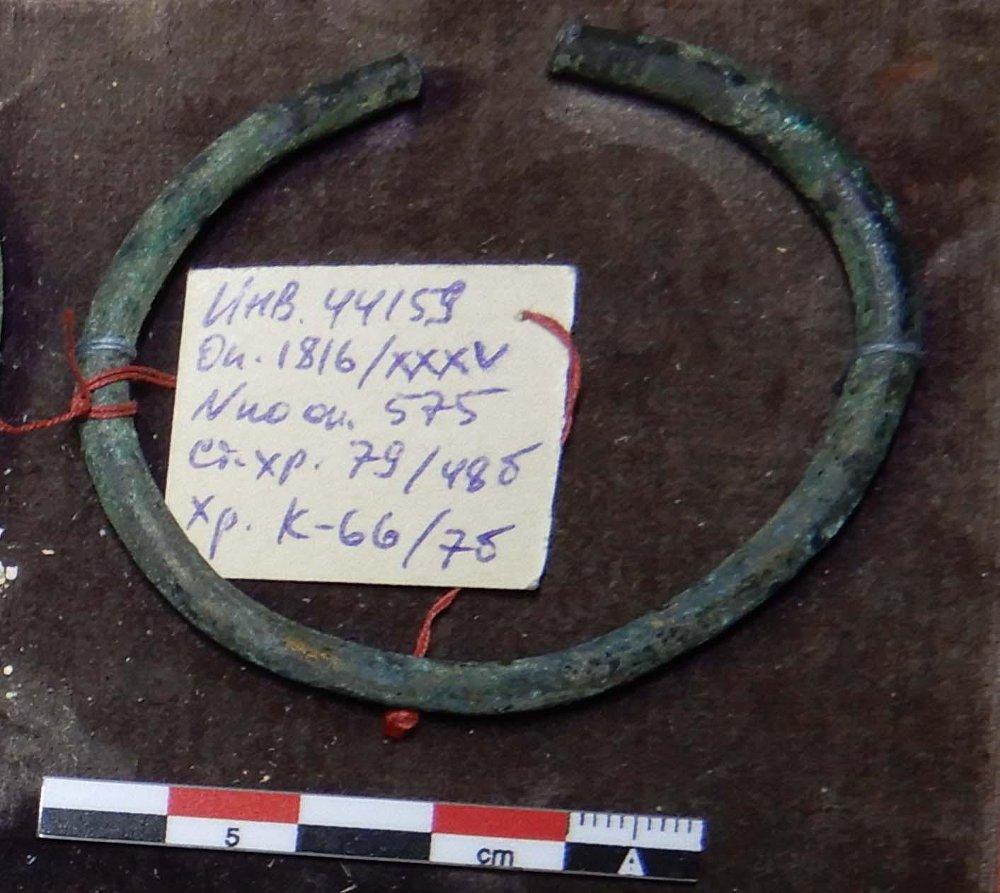 Инв. 44159
Оп. 1816/XXXV
N по оп. 575
Ст.хр. 79/48б
Хр. К-66/7б
5
cm